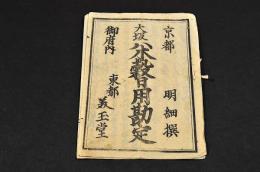 京都
明細撰
大坂
米穀日用勘定
御府内
東都
美玉堂